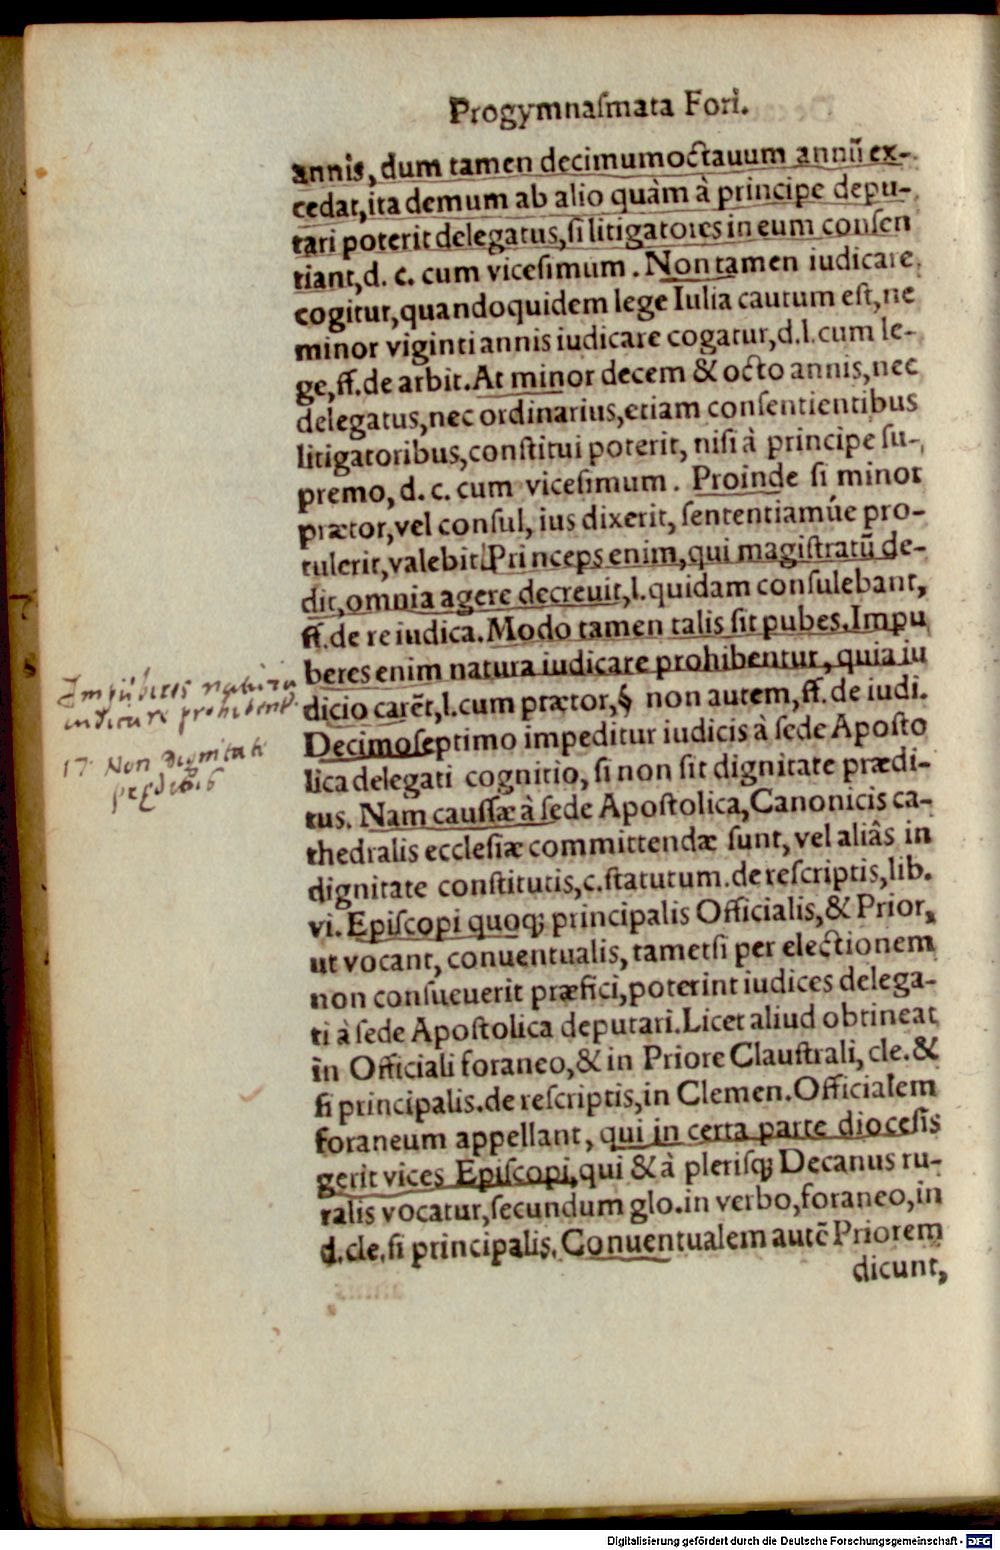 Progymnaſmata Fori.
annis, dum tamen decimumoctauum annū ex-
cedat, ita demum ab alio quàm à principe depu-
tari poterit delegatus, ſi litigatores in eum conſen
tiant, d. c. cum viceſimum. Non tamen iudicare
cogitur, quandoquidem lege Iulia cautum eſt, ne
minor viginti annis iudicare cogatur, d. l. cum le-
ge, ff. de arbit. At minor decem & octo annis, nec
delegatus, nec ordinarius, etiam conſentientibus
litigatoribus, conſtitui poterit, niſi à principe ſu-
premo, d. c. cum viceſimum. Proinde ſi minor
prætor, vel conſul, ius dixerit, ſententiamúe pro-
tulerit, valebit. Princeps enim, qui magiſtratū de-
dit, omnia agere decreuit, l. quidam conſulebant,
ff. de re iudica. Modo tamen talis ſit pubes. Impu
beres enim natura iudicare prohibentur, quia iu
dicio carēt, l. cum prætor, § non autem, ff. de iudi.
Impuberes natura
iudicare prohibent.
Decimoſeptimo impeditur iudicis à ſede Apoſto
17 Non dignitate
præditus
lica delegati cognitio, ſi non ſit dignitate prædi-
tus. Nam cauſſæ à ſede Apoſtolica, Canonicis ca-
thedralis eccleſiæ committendæ ſunt, vel aliâs in
dignitate conſtitutis, c. ſtatutum. de reſcriptis, lib.
vi. Epiſcopi quoq; principalis Officialis, & Prior,
ut vocant, conuentualis, tametſi per electionem
non conſueuerit præfici, poterint iudices delega-
ti à ſede Apoſtolica deputari. Licet aliud obtineat
in Officiali foraneo, & in Priore Clauſtrali, cle. &
ſi principalis. de reſcriptis, in Clemen. Officialem
foraneum appellant, qui in certa parte dioceſis
gerit vices Epiſcopi, qui & à pleriſq; Decanus ru-
ralis vocatur, ſecundum glo. in verbo, foraneo, in
d. cle. ſi principalis. Conuentualem autē Priorem
dicunt,
Digitalisierung gefördert durch die Deutsche Forschungsgemeinschaft - DFG